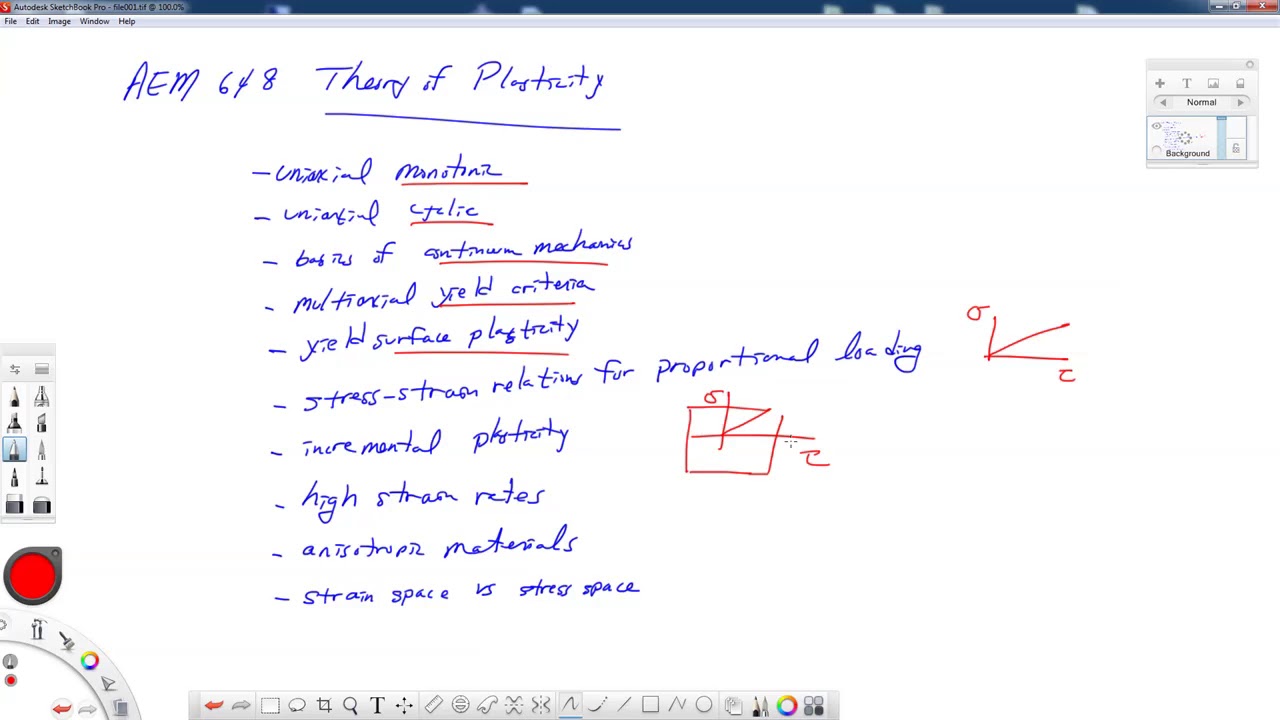 Autodesk SketchBook Pro - file001.tif @ 100.0%
File Edit Image Window Help
AEM 648 Theory of Plasticity
- uniaxial monotonic
- uniaxial cyclic
- basics of continuum mechanics
- multiaxial yield criteria
- yield surface plasticity
- stress-strain relations for proportional loading
- incremental plasticity
- high strain rates
- anisotropic materials
- strain space vs stress space
σ
τ
σ
τ
T
Normal
Background
T